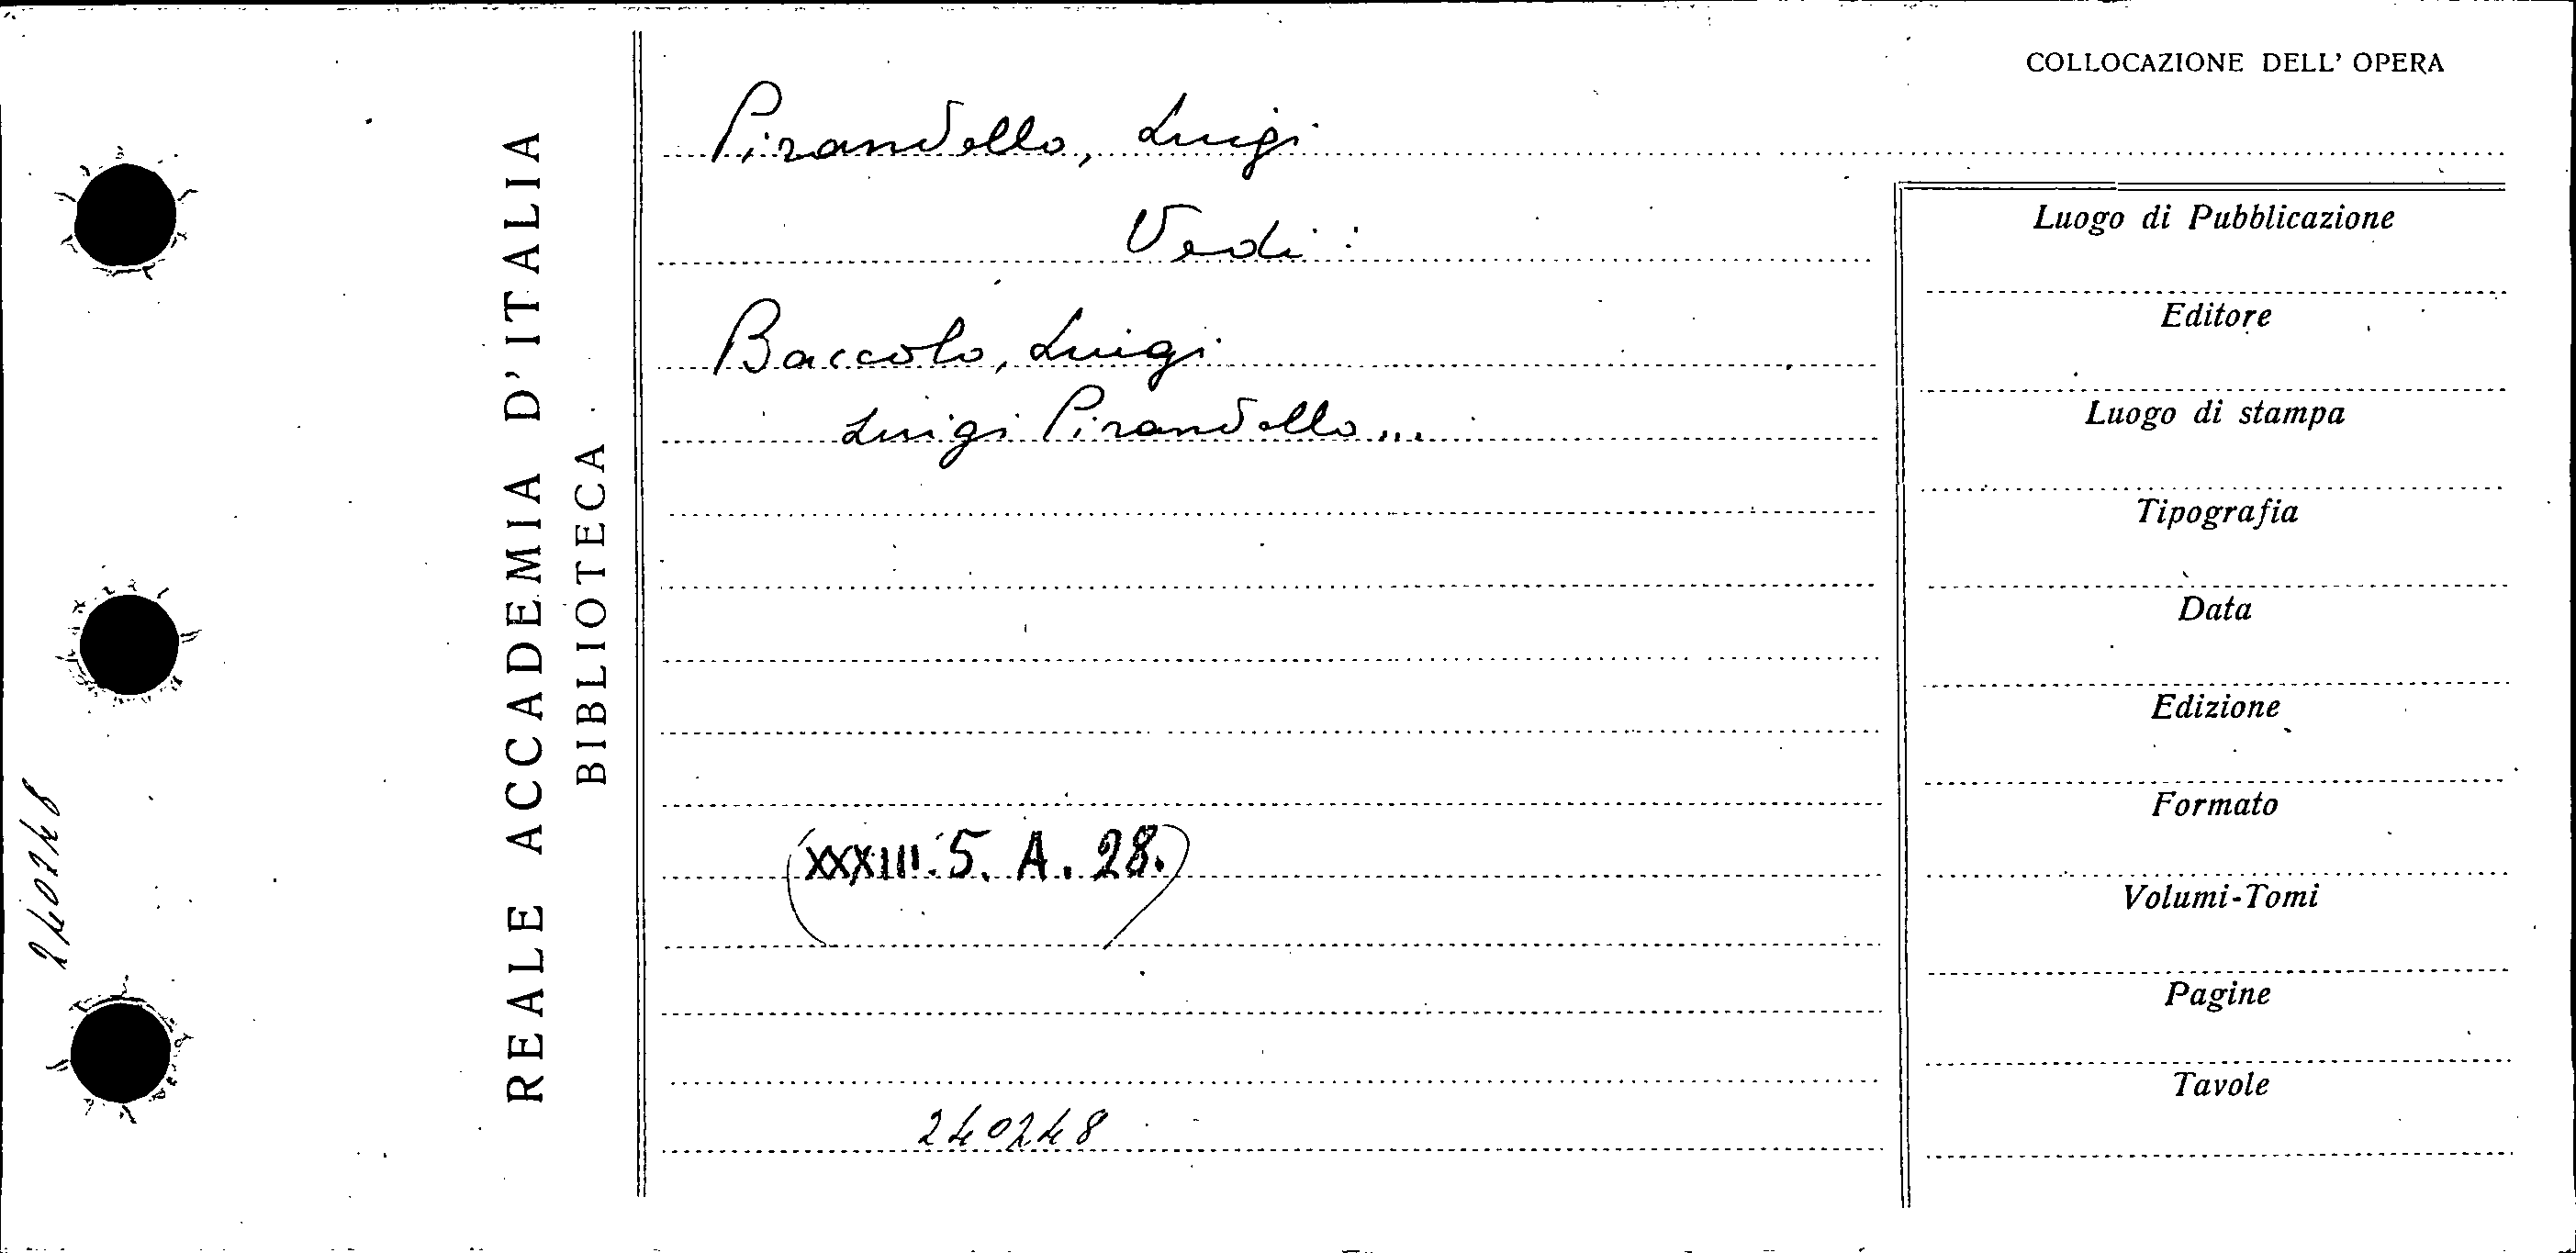 COLLOCAZIONE DELL' OPERA
Pirandello, Luigi
Vedi:
Baccolo, Luigi
Luigi Pirandello...
(XXXIII. 5. A. 28.)
240248
REALE ACCADEMIA D'ITALIA
BIBLIOTECA
240248
Luogo di Pubblicazione
Editore
Luogo di stampa
Tipografia
Data
Edizione
Formato
Volumi-Tomi
Pagine
Tavole